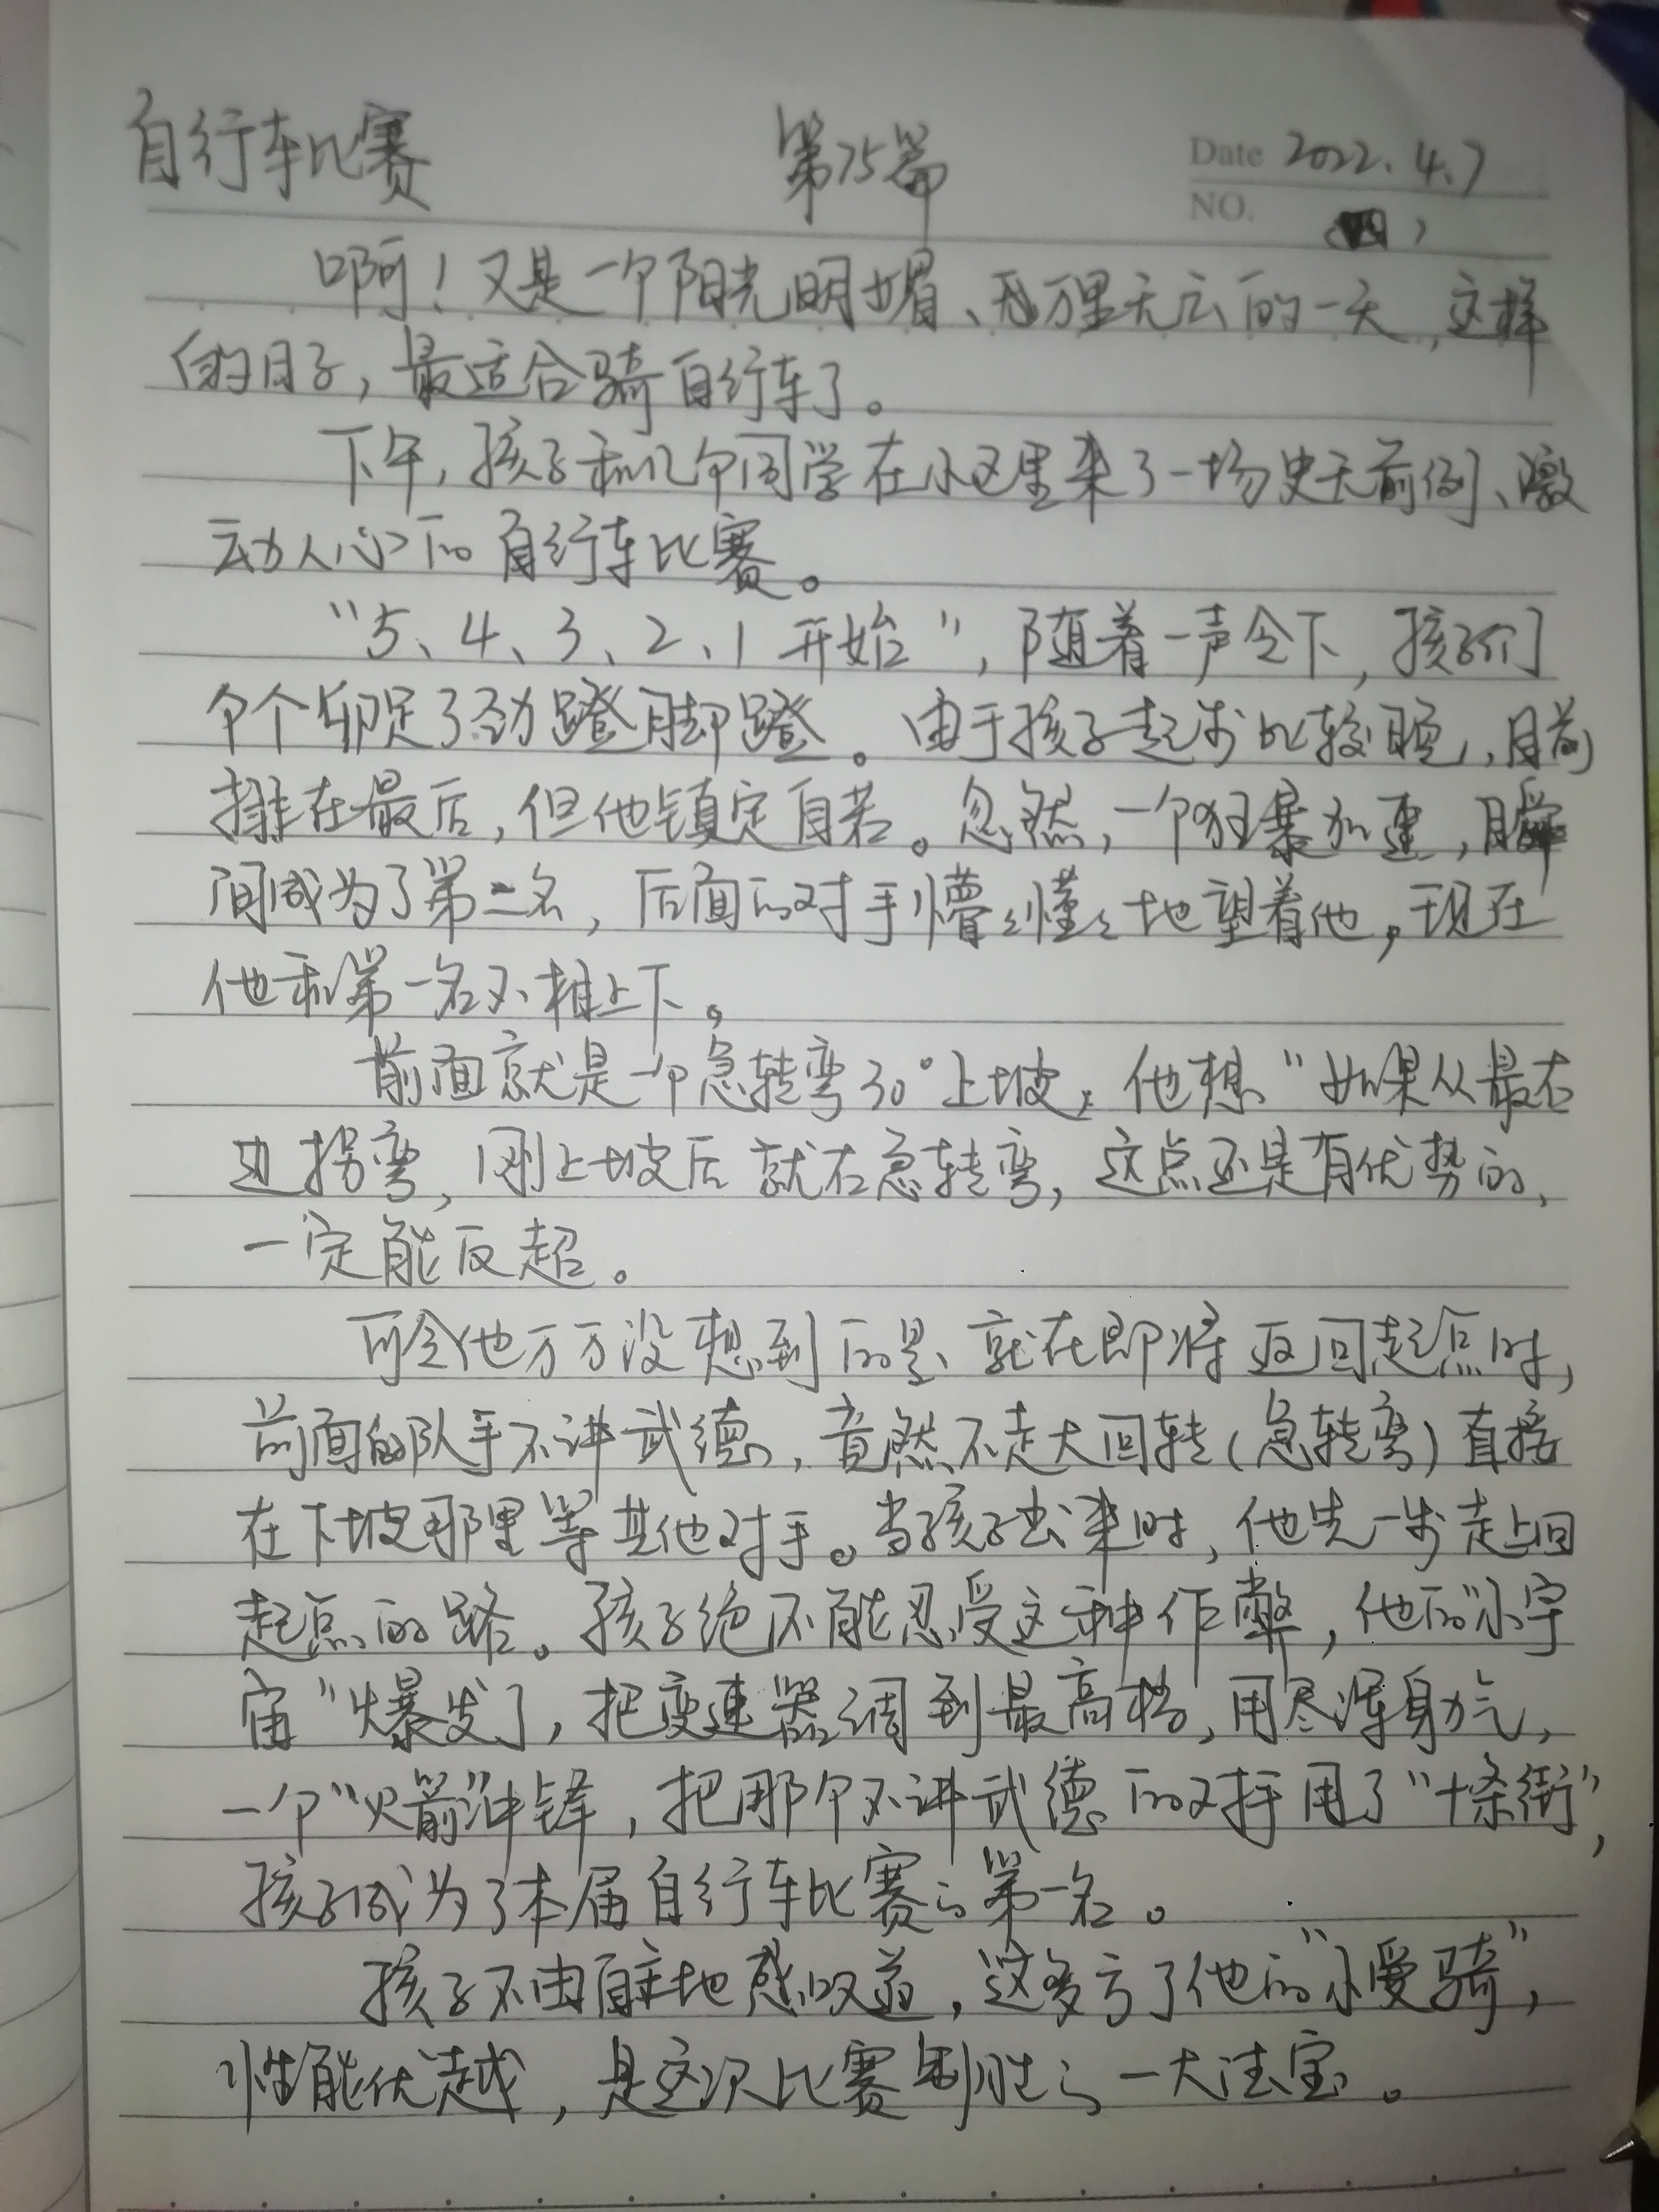 自行车比赛 第75篇 Date 2022.4.7
NO. (四)
啊！又是一个阳光明媚、万里无云的一天，这样
的日子，最适合骑自行车了。
下午，孩子和几个同学在小区里来了一场史无前例、激
动人心的自行车比赛。
“5、4、3、2、1开始”，随着一声令下，孩子们
个个卯足了劲蹬脚蹬。由于孩子起步比较晚，目前
排在最后，但他镇定自若。忽然，一个狂暴加速，瞬
间成为了第二名，后面的对手懵懵懂懂地望着他，现在
他和第一名不相上下。
前面就是一个急转弯30°上坡，他想“如果从最右
边拐弯，刚上坡后就右急转弯，这点还是有优势的，
一定能反超。
可令他万万没想到的是、就在即将返回起点时，
前面的队手不讲武德，竟然不走大回转(急转弯)直接
在下坡那里等其他对手。当孩子出来时，他先一步走上回
起点的路。孩子绝不能忍受这种作弊，他的“小宇
宙”爆发了，把变速器调到最高档，用尽浑身力气，
一个“火箭”冲锋，把那个不讲武德的对手甩了“十条街”，
孩子成为了本届自行车比赛的第一名。
孩子不由自主地感叹道，这多亏了他的“小爱骑”，
性能优越，是这次比赛制胜的一大法宝。